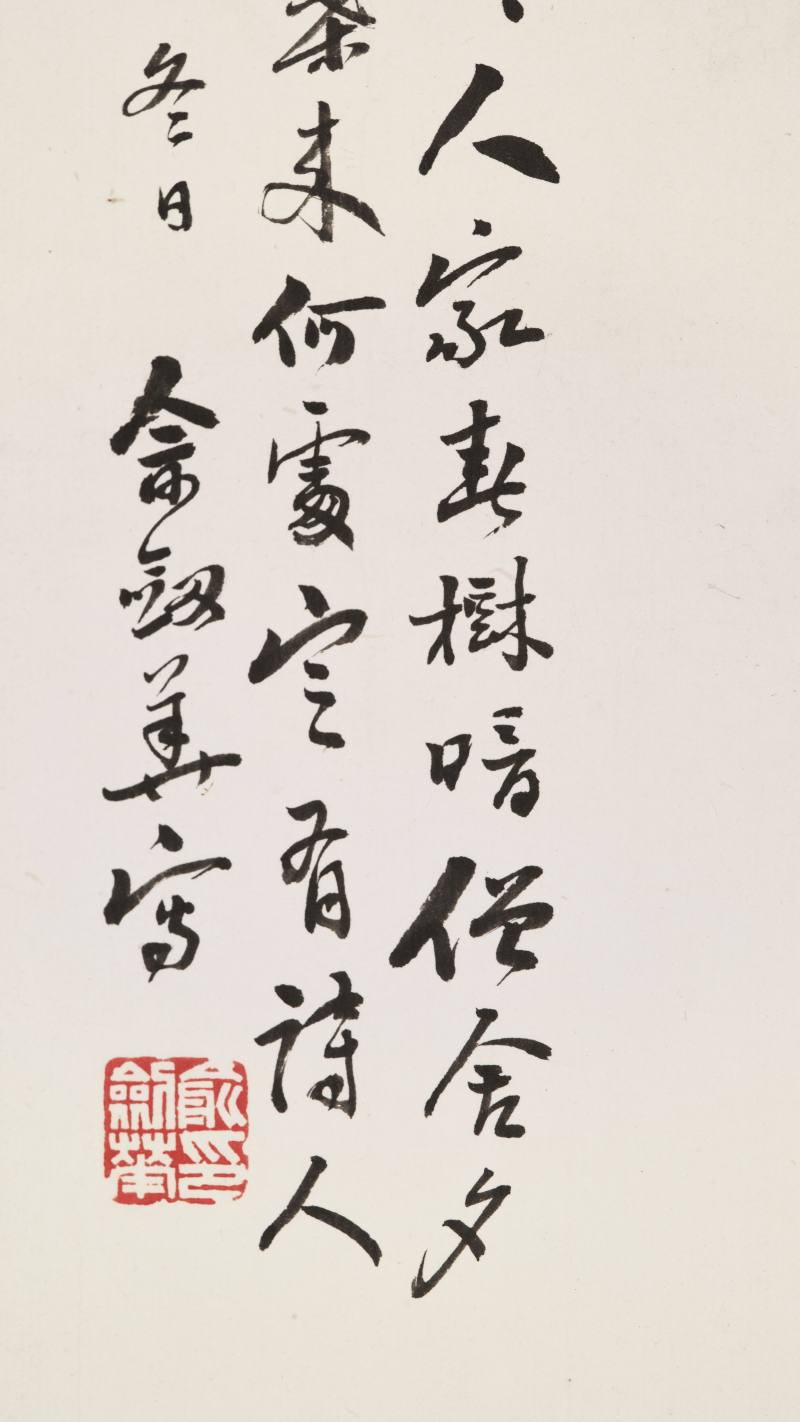 人家春樹暗僧舍夕
來何處定有詩人
冬日 俞劍華寫
俞印劍華